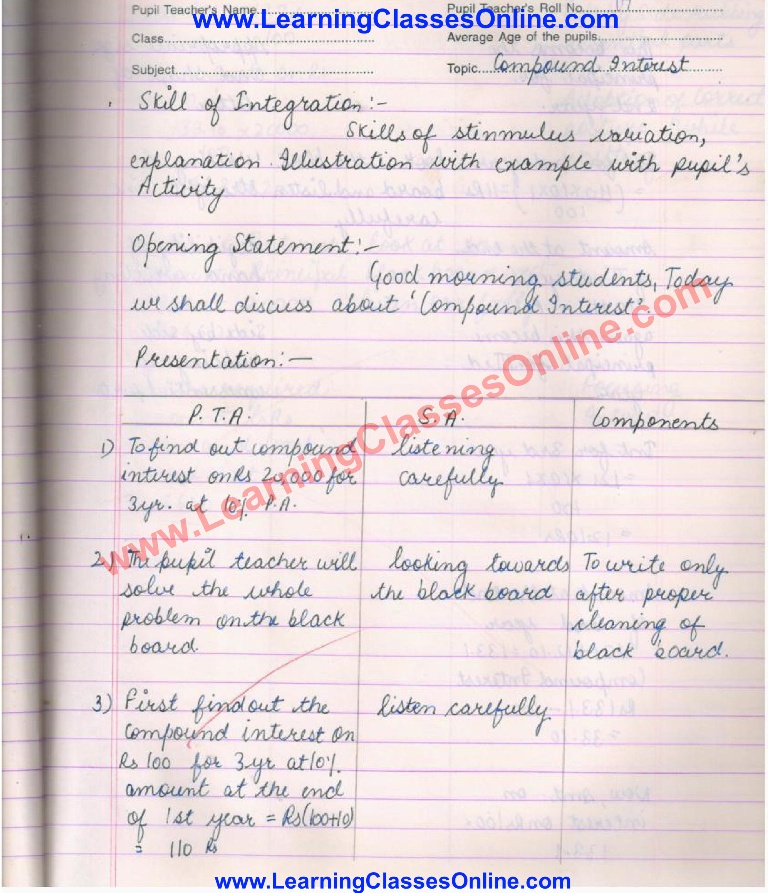 www.LearningClassesOnline.com
Pupil Teacher's Name
Pupil Teacher's Roll No.
Class
Average Age of the pupils
Subject
Topic Compound Interest
Skill of Integration:-
Skills of stinmulus variation,
explanation. Illustration with example with pupil's
Activity
Opening Statement:-
Good morning students, Today
we shall discuss about 'Compound Interest'.
Presentation:-
P.T.A. S.A. Components
1) To find out compound
interest on Rs 20,000 for
3yr. at 10% P.A.
listening
carefully
2) The pupil teacher will
solve the whole
problem on the black
board.
looking towards
the black board
To write only
after proper
cleaning of
black board.
3) First findout the
compound interest on
Rs 100 for 3yr at 10%
amount at the end
of 1st year = Rs(100+10)
= 110 Rs
listen carefully
www.LearningClassesOnline.com
www.LearningClassesOnline.com